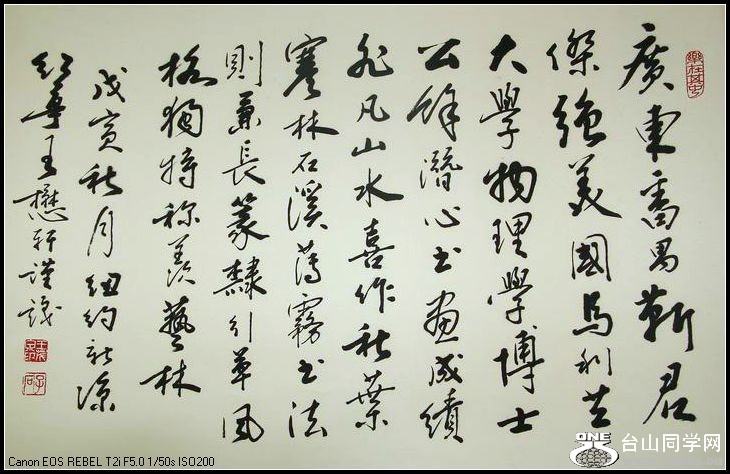 廣東番禺靳君
傑強美國馬利
大學物理學博士
公餘潛心書畫成績
非凡山水喜作秋葉
寒林石溪薄霧書法
則兼長篆隸行草風
格獨特称羨藝林
戊寅秋月紐約新涼
王懋軒謹識
Canon EOS REBEL T2i F5.0 1/50s ISO200
ONE
台山同学网